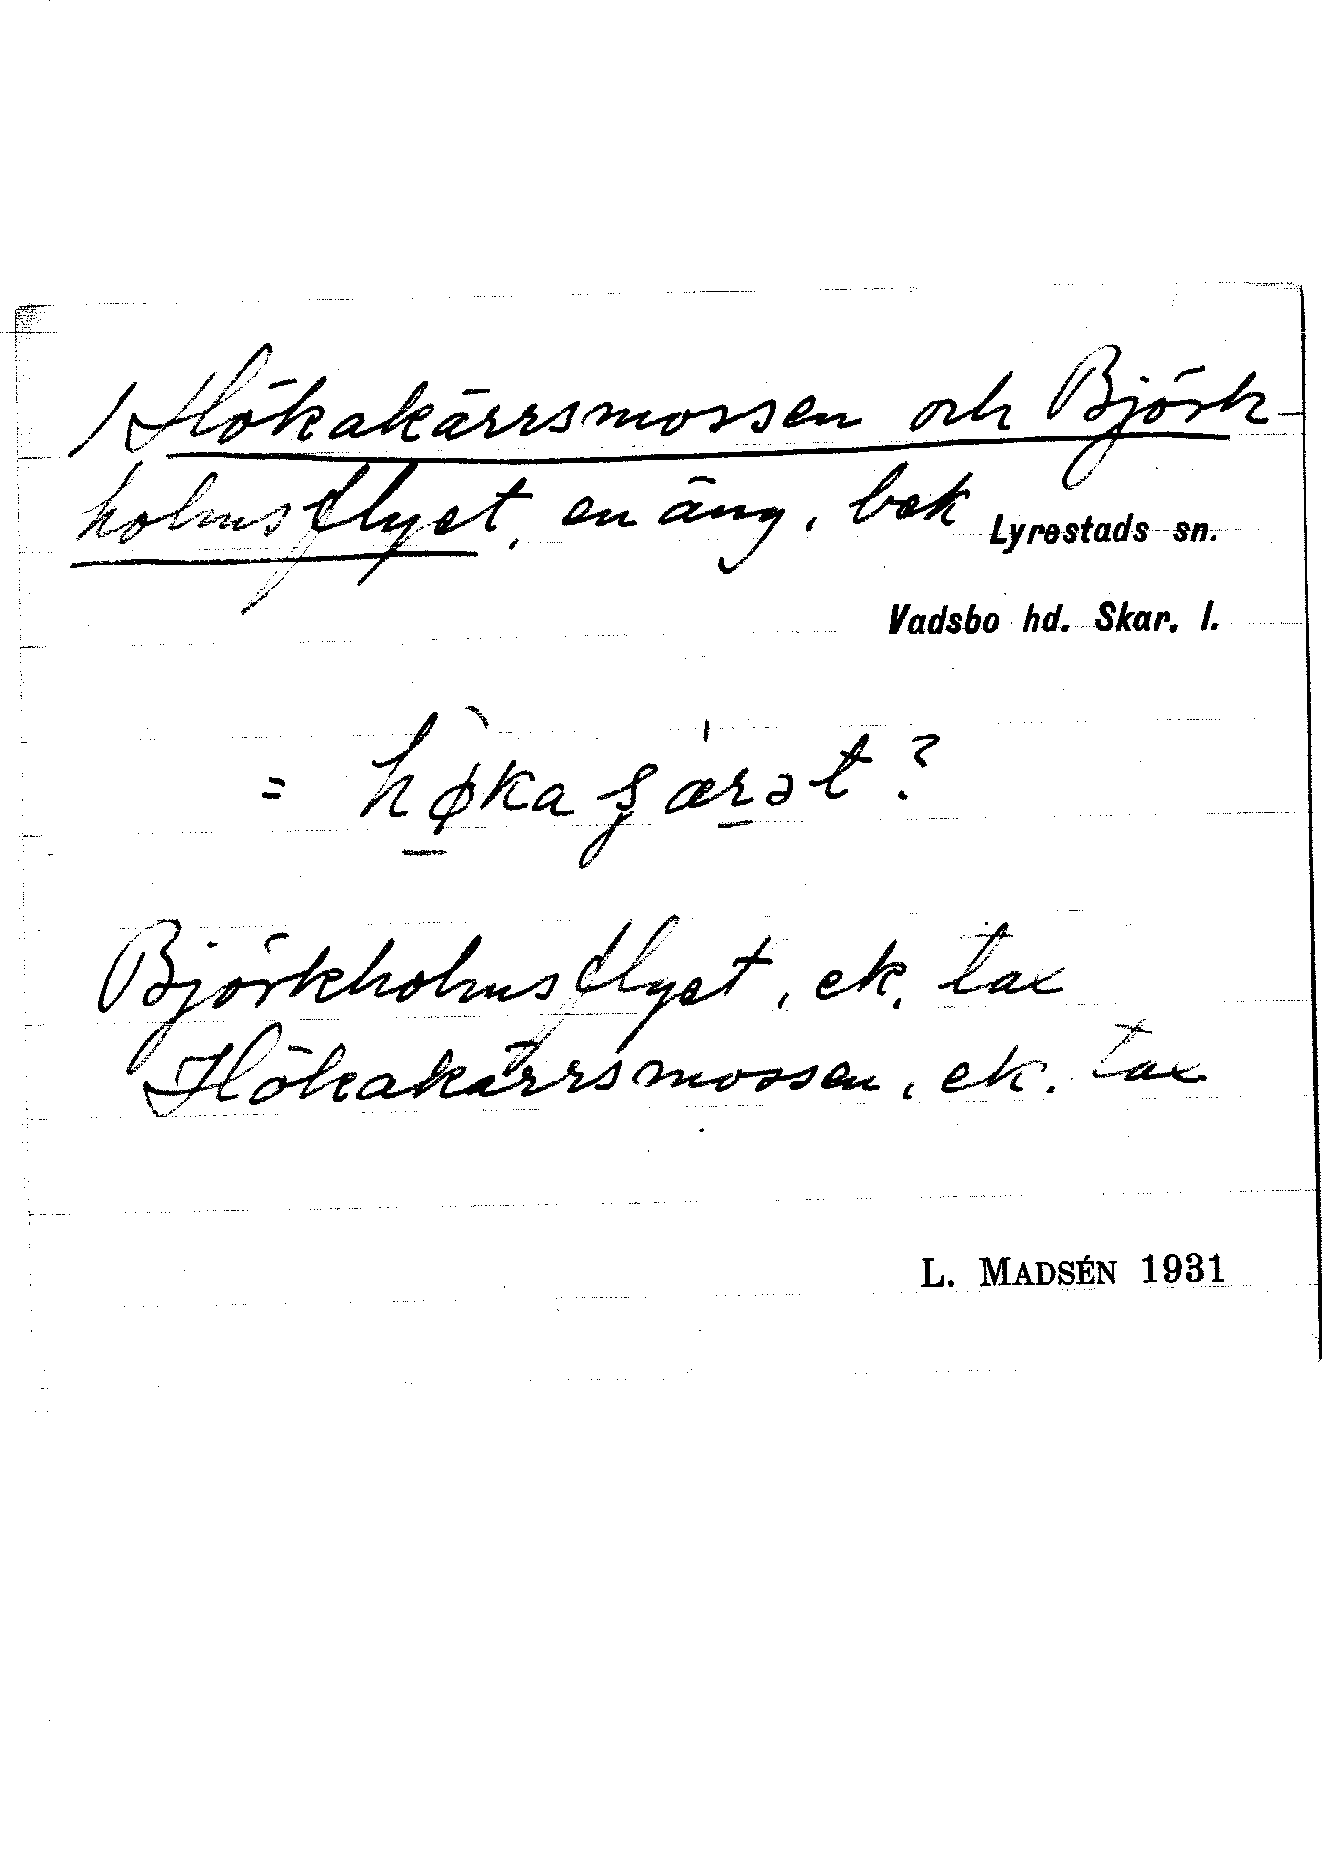 /Hökakärrsmossen och Björk-
holmsflyet, en äng, bek
Lyrestads sn.
Vadsbo hd. Skar. l.
= høkaʂærət?
Björkholmsflyet, ek. tax
Hökakärrsmossen, ek. tax
L. MADSÉN 1931